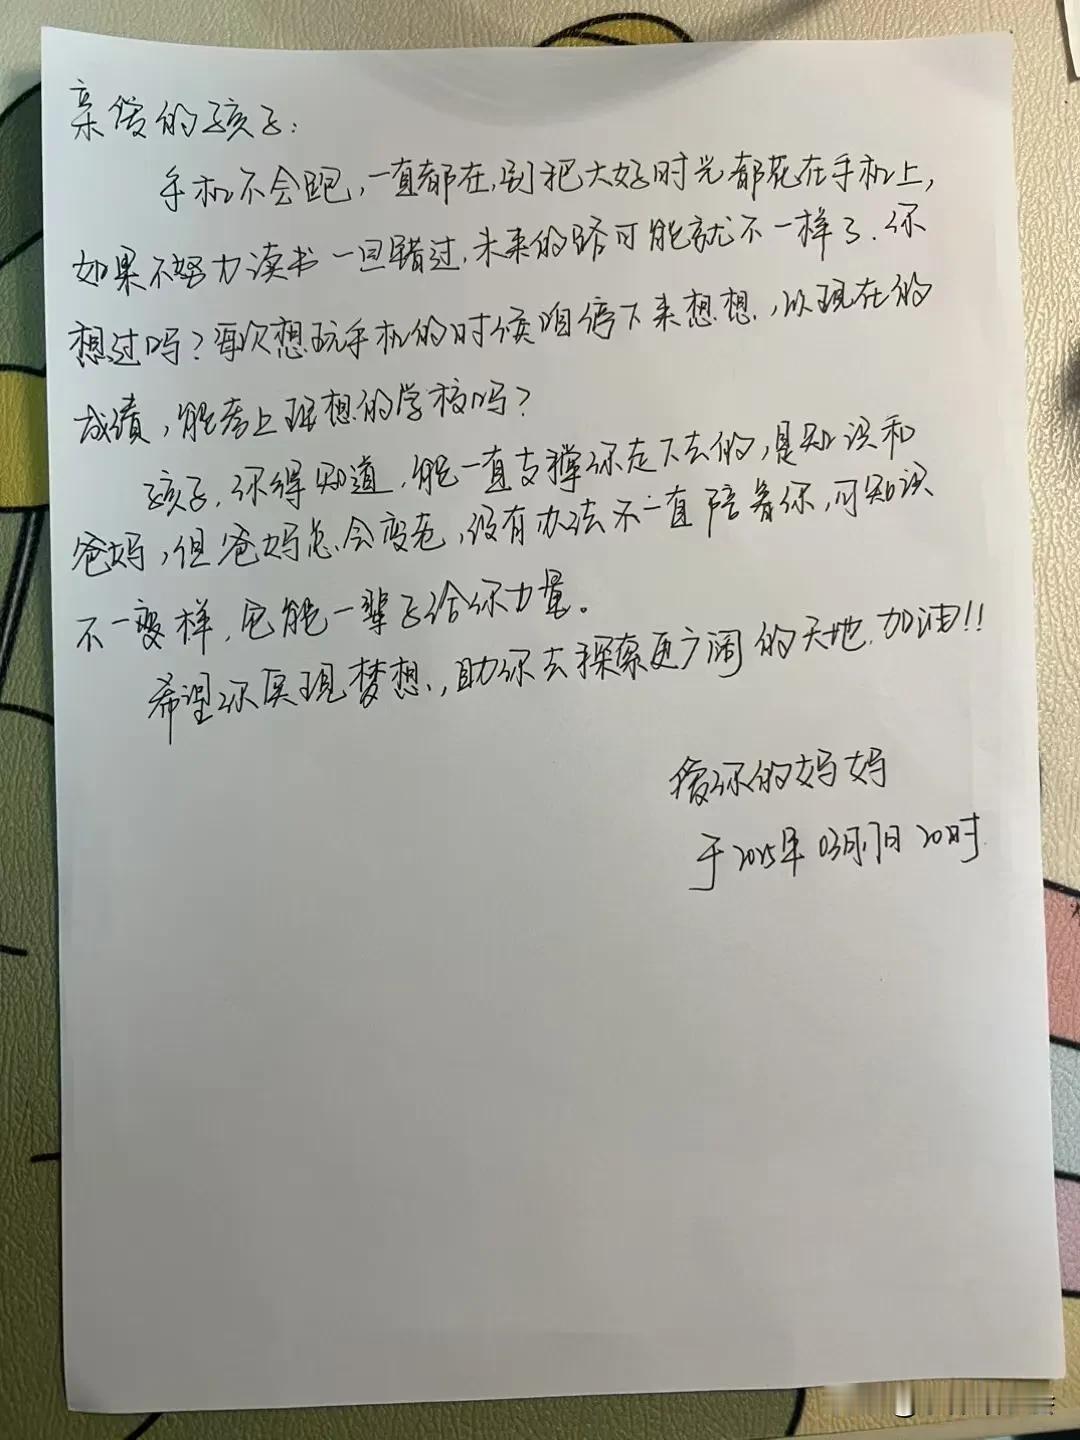 亲爱的孩子:
手机不会跑,一直都在,别把大好时光都花在手机上,
如果不努力读书一旦错过,未来的路可能就不一样了.你
想过吗?再次想玩手机的时候咱停下来想想,以现在的
成绩,能考上理想的学校吗?
孩子,你得知道,能一直支撑你走下去的,是知识和
爸妈,但爸妈总会变老,没有办法不一直陪着你,可知识
不一变样,它能一辈子给你力量。
希望你实现梦想,助你去探索更广阔的天地.加油!!
爱你的妈妈
于2025年03月17日20时.